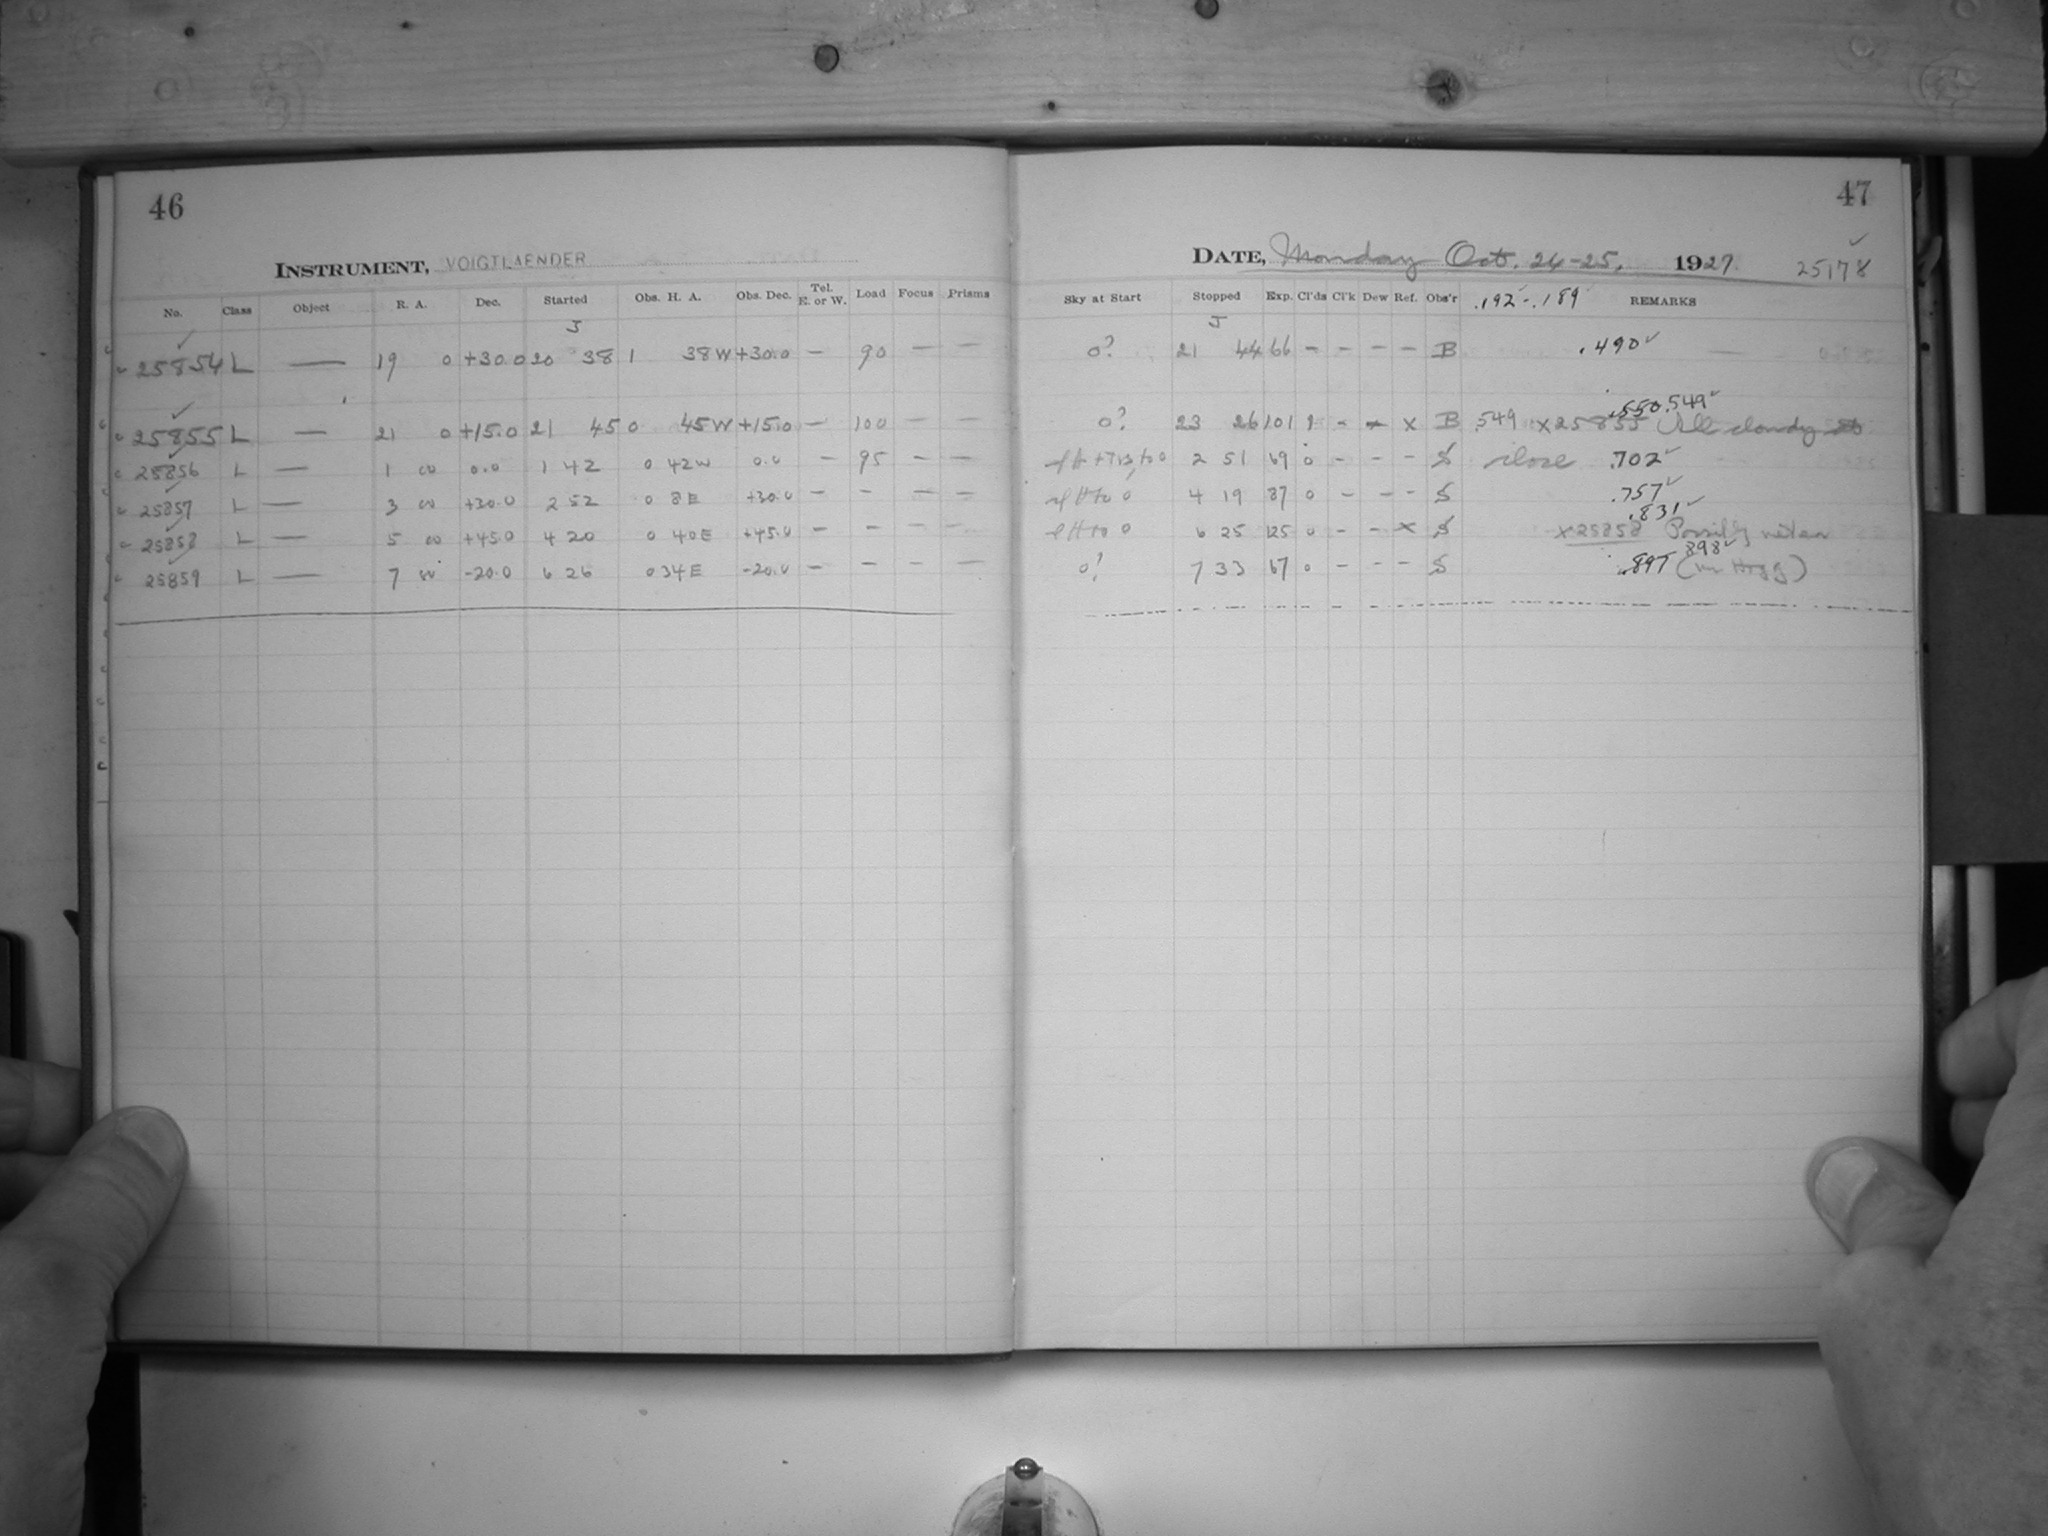 46
INSTRUMENT, VOIGTLAENDER
No. Class Object R. A. Dec. Started Obs. H. A. Obs. Dec. Tel. E. or W. Load Focus Prisms
J
25854 L — 19 0 +30.0 20 38 1 38W +30.0 — 90 — —
25855 L — 21 0 +15.0 21 45 0 45W +15.0 — 100 — —
25856 L — 1 00 0.0 1 42 0 42W 0.0 — 95 — —
25857 L — 3 00 +30.0 2 52 0 8E +30.0 — — — —
25858 L — 5 00 +45.0 4 20 0 40E +45.0 — — — —
25859 L — 7 00 -20.0 6 26 0 34E -20.0 — — — —
47
DATE, Monday Oct. 24-25, 1927. 25178
Sky at Start Stopped Exp. Cl'ds Cl'k Dew Ref. Obs'r .192-.189 REMARKS
J
0? 21 44 66 - - - - B .490
.550 .549
0? 23 26 101 - - x B .549 x25855 All cloudy
2 51 69 0 - - - S close .702
4 19 87 0 - - - S .757
.831
6 25 125 0 - - x S x25858 Possibly
898
0? 7 33 67 0 - - - S .897